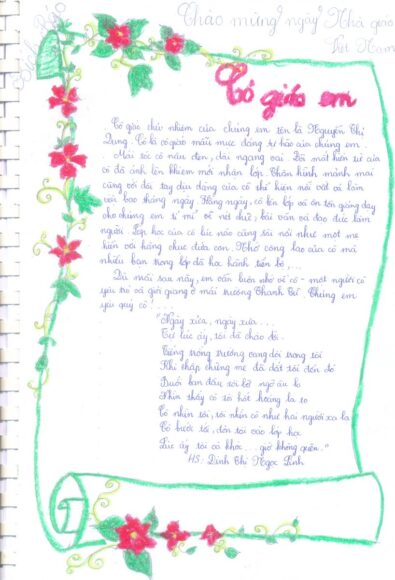 Chào mừng ngày Nhà giáo
Việt Nam
Cô giáo em
Cô giáo chủ nhiệm của chúng em tên là Nguyễn Thị
Dung. Cô là cô giáo mẫu mực đáng tự hào của chúng em.
Mái tóc cô màu đen, dài ngang vai. Đôi mắt hiền từ của
cô đã ánh lên khi em mới nhận lớp. Thân hình mảnh mai
cùng với đôi tay dịu dàng của cô thể hiện nỗi vất vả làm
với bao tháng ngày. Hằng ngày, cô lên lớp và ôn tồn giảng dạy
cho chúng em tỉ mỉ về nét chữ, bài văn và đạo đức làm
người. Lớp học của cô lúc nào cũng sôi nổi như một mẹ
hiền với hàng chục đứa con. Nhờ công lao của cô mà
nhiều bạn trong lớp đã học hành tiến bộ,...
Dù mai sau này, em vẫn luôn nhớ về cô - một người cô
yêu trò và giỏi giang ở mái trường Thanh Tế. Chúng em
yêu quý cô!
"Ngày xưa, ngày xưa...
Từ lúc ấy, tôi đã chào đời.
Tiếng trống trường vang dội trong tôi
Khi thấp chững mẹ đã dắt tôi đến đó
Buổi ban đầu tôi bỡ ngỡ âu lo
Nhìn thấy cô tôi hốt hoảng la to
Cô nhìn tôi, tôi nhìn cô như hai người xa lạ
Cô bước tới, đón tôi vào lớp học
Lúc ấy tôi cô khóc... giờ không quên."
HS: Đinh Thị Ngọc Linh